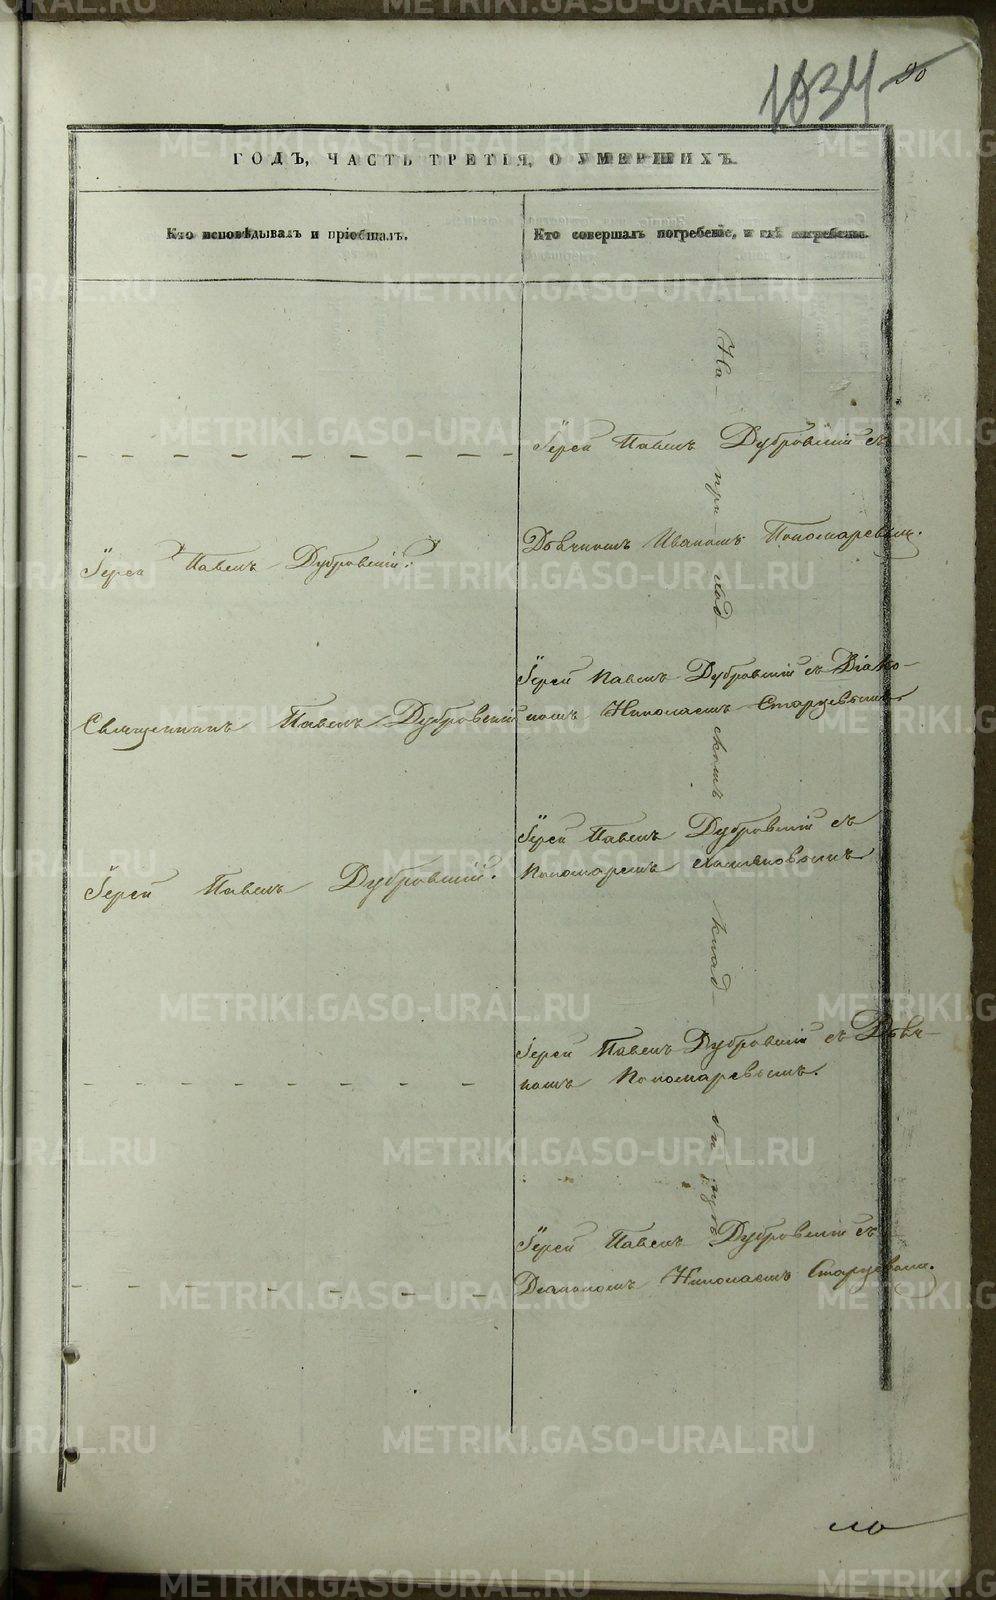 1034 90
ГОДЪ, ЧАСТЬ ТРЕТІЯ, О УМЕРШИХЪ.
Кто исповѣдывалъ и пріобщалъ.
Кто совершалъ погребеніе, и гдѣ погребены.
Іерей Павелъ Дубровскій съ
Дьячкомъ Иваномъ Пономаревым.
Іерей Павелъ Дубровскій.
Іерей Павелъ Дубровскій съ Діако-
номъ Николаемъ Старцевымъ
Священникъ Павелъ Дубровскій
Іерей Павелъ Дубровскій съ
Пономаремъ
Іерей Павелъ Дубровскій.
Іерей Павелъ Дубровскій съ Дьяч-
комъ Пономаревымъ.
Іерей Павелъ Дубровскій съ
Діакономъ Николаемъ Старцевым.
На при-ход-скомъ клад-би-щѣ
METRIKI.GASO-URAL.RU